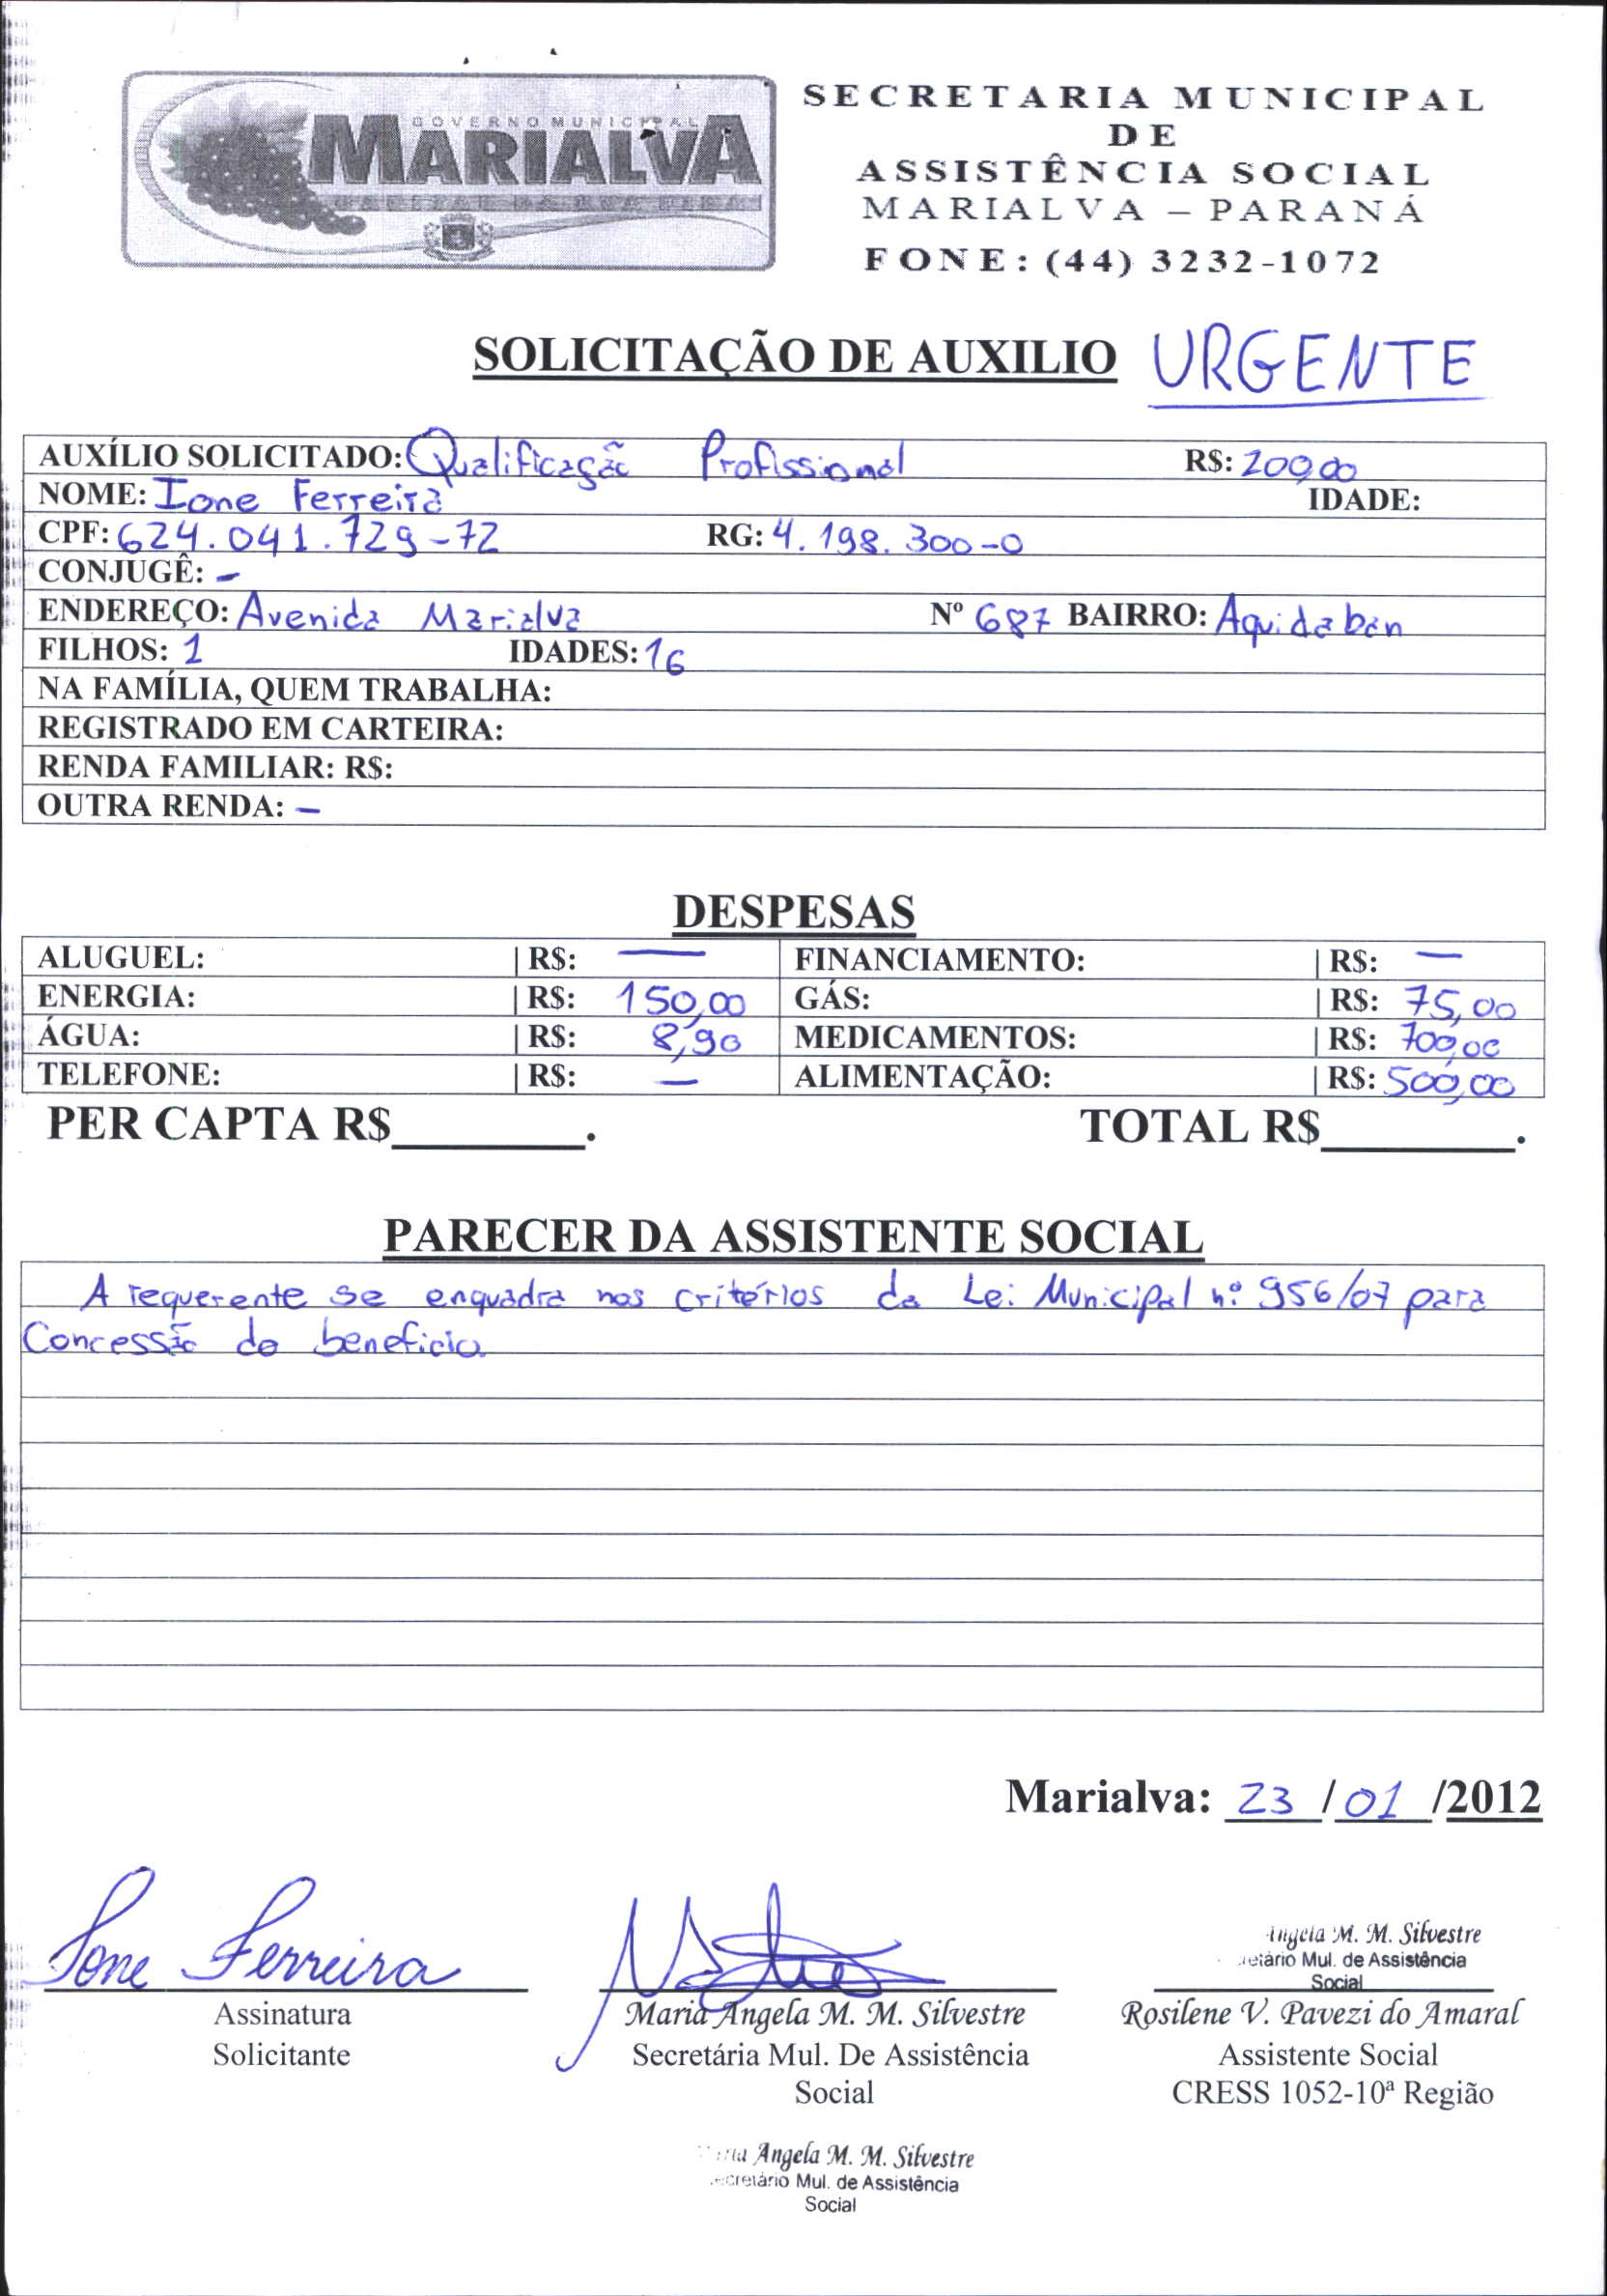 GOVERNO MUNICIPAL
MARIALVA
SECRETARIA MUNICIPAL
DE
ASSISTÊNCIA SOCIAL
MARIALVA – PARANÁ
FONE: (44) 3232-1072
SOLICITAÇÃO DE AUXILIO URGENTE
AUXÍLIO SOLICITADO: Qualificação Profissional R$: 200,00
NOME: Ione Ferreira IDADE:
CPF: 624.041.729-72 RG: 4.198.300-0
CONJUGÊ: -
ENDEREÇO: Avenida Marialva Nº 687 BAIRRO: Aquidaban
FILHOS: 1 IDADES: 16
NA FAMÍLIA, QUEM TRABALHA:
REGISTRADO EM CARTEIRA:
RENDA FAMILIAR: R$:
OUTRA RENDA: -
DESPESAS
ALUGUEL: | R$: — FINANCIAMENTO: | R$: —
ENERGIA: | R$: 150,00 GÁS: | R$: 75,00
ÁGUA: | R$: 8,90 MEDICAMENTOS: | R$: 700,00
TELEFONE: | R$: — ALIMENTAÇÃO: | R$: 500,00
PER CAPTA R$________. TOTAL R$________.
PARECER DA ASSISTENTE SOCIAL
A requerente se enquadra nos critérios da Lei Municipal nº 956/07 para
Concessão do beneficio.
Marialva: 23 / 01 /2012
Ione Ferreira
Angela M. M. Silvestre
Mul. de Assistência
Social
Assinatura Maria Angela M. M. Silvestre Rosilene V. Pavezi do Amaral
Solicitante Secretária Mul. De Assistência Assistente Social
Social CRESS 1052-10ª Região
Angela M. M. Silvestre
Mul. de Assistência
Social